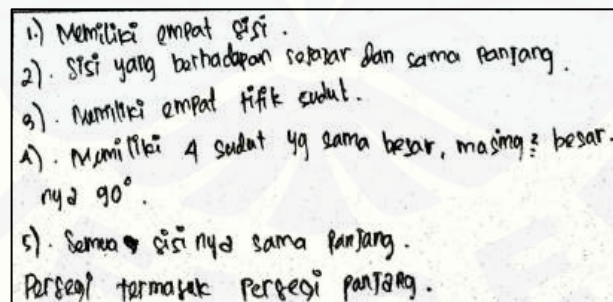 1.) Memiliki empat sisi.
2). Sisi yang berhadapan sejajar dan sama panjang.
3). Memiliki empat titik sudut.
4). Memiliki 4 sudut yg sama besar, masing² besar.
nya 90°.
5). Semua sisi nya sama panjang.
Persegi termasuk persegi panjang.